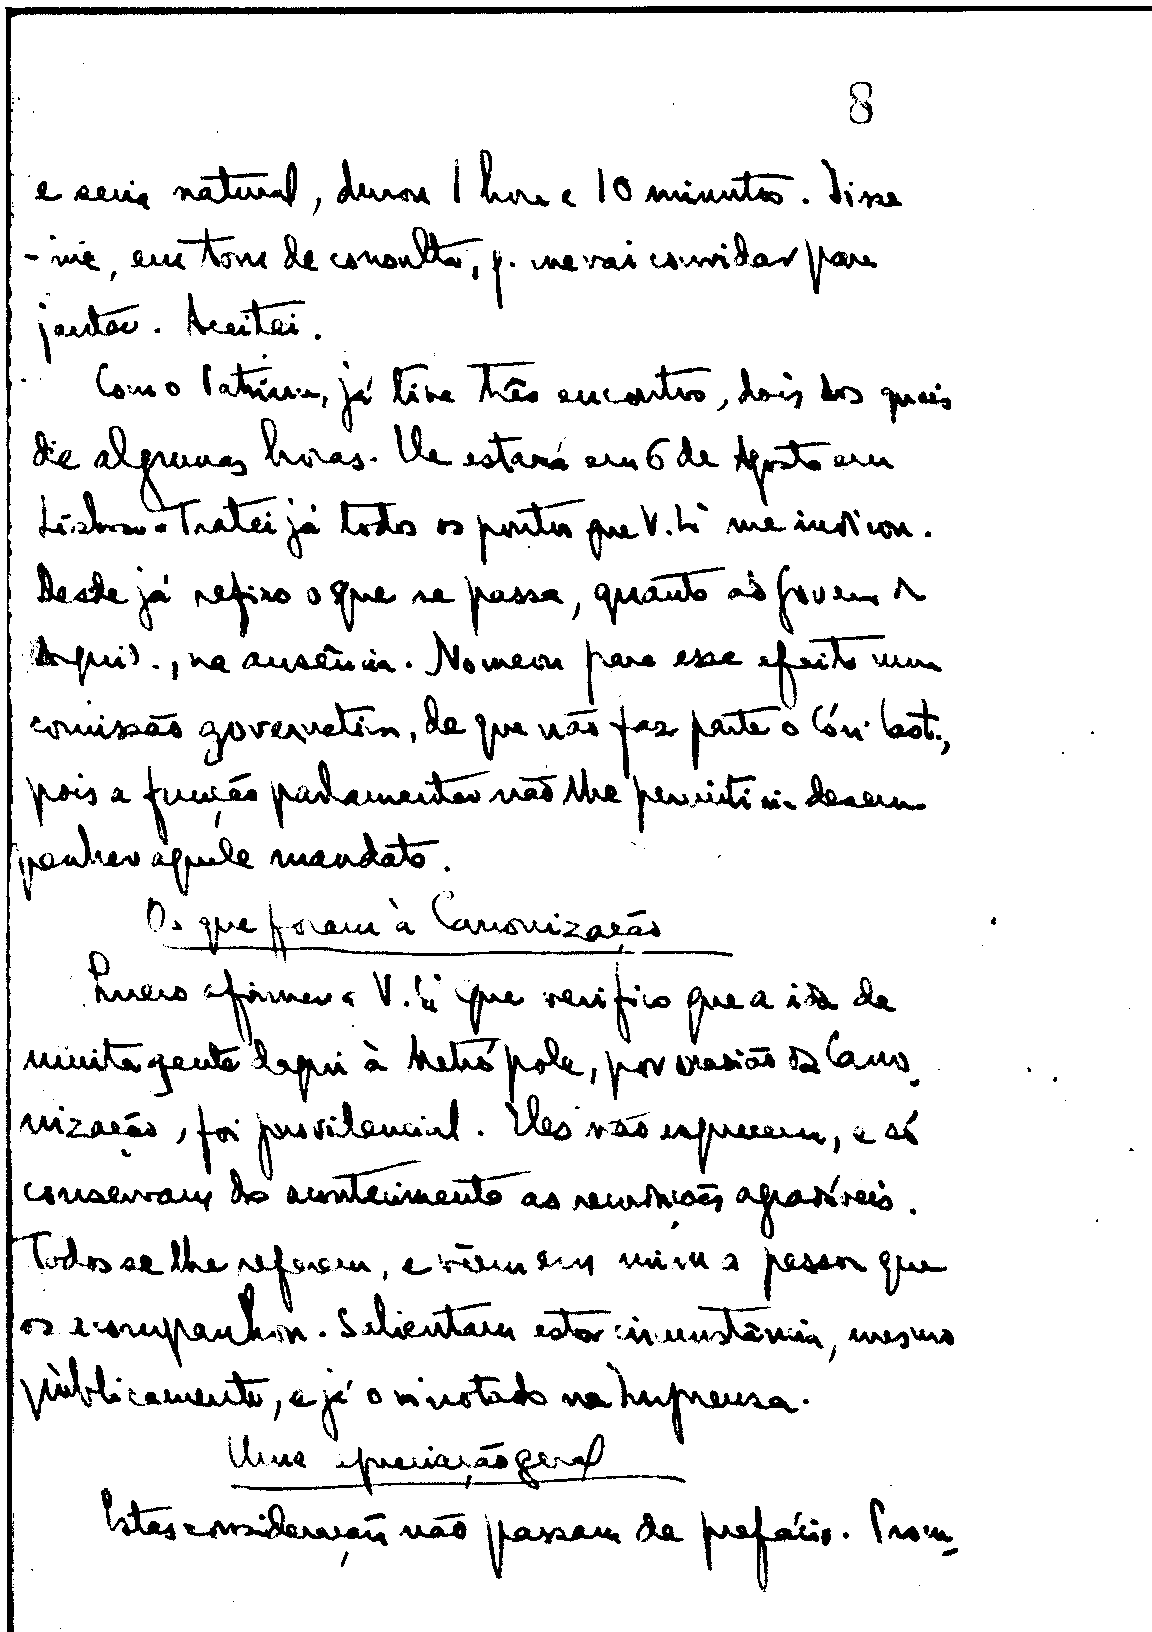 8
e seria natural, durou 1 hora e 10 minutos. Disse
-me, em tom de consulta, q. me vai convidar para
jantar. Aceitei.
Com o Patriarca, já tive três encontros, dois dos quais
de algumas horas. Ele estará em 6 de Agosto em
Lisboa. Tratei já todos os pontos que V. Ex.ª me indicou.
Desde já refiro o que se passa, quanto ao governo da
Arquid., na ausência. Nomeou para esse efeito uma
comissão governativa, de que não faz parte o Cón. Cast.,
pois a função parlamentar não lhe permitiria desem-
penhar aquele mandato.
Os que foram à Canonização
Quero afirmar a V. Ex.ª que verifico que a ida de
muita gente daqui à Metrópole, por ocasião da Cano-
nização, foi providencial. Eles não esquecem, e só
conservam do acontecimento as recordações agradáveis.
Todos se lhe referem, e vêem em mim a pessoa que
os acompanhou. Salientam esta circunstância, mesmo
pùblicamente, e já o vi notado na Imprensa.
Uma apreciação geral
Estas considerações não passam de prefácio. Prom-